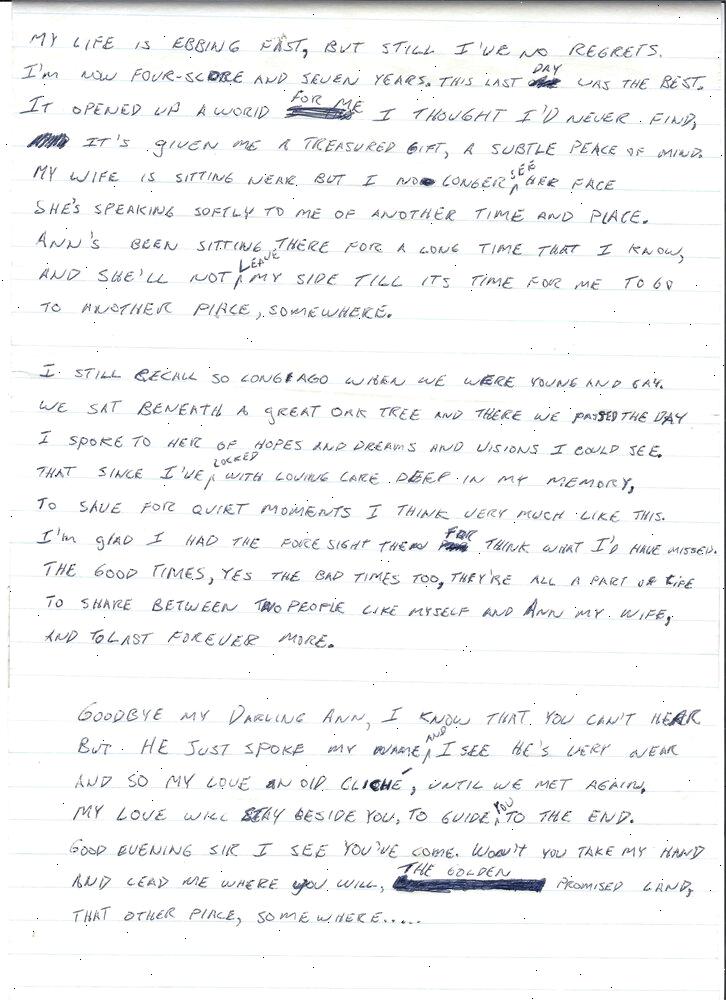 MY LIFE IS EBBING FAST, BUT STILL I'VE NO REGRETS.
I'M NOW FOUR-SCORE AND SEVEN YEARS. THIS LAST DAY WAS THE BEST.
IT OPENED UP A WORLD FOR ME I THOUGHT I'D NEVER FIND,
IT'S GIVEN ME A TREASURED GIFT, A SUBTLE PEACE OF MIND.
MY WIFE IS SITTING NEAR BUT I NO LONGER SEE HER FACE
SHE'S SPEAKING SOFTLY TO ME OF ANOTHER TIME AND PLACE.
ANN'S BEEN SITTING THERE FOR A LONG TIME THAT I KNOW,
AND SHE'LL NOT LEAVE MY SIDE TILL ITS TIME FOR ME TO GO
TO ANOTHER PLACE, SOMEWHERE.
I STILL RECALL SO LONG AGO WHEN WE WERE YOUNG AND GAY.
WE SAT BENEATH A GREAT OAK TREE AND THERE WE PASSED THE DAY
I SPOKE TO HER OF HOPES AND DREAMS AND VISIONS I COULD SEE.
THAT SINCE I'VE LOCKED WITH LOVING CARE DEEP IN MY MEMORY,
TO SAVE FOR QUIET MOMENTS I THINK VERY MUCH LIKE THIS.
I'M GLAD I HAD THE FORE SIGHT THEN FOR THINK WHAT I'D HAVE MISSED.
THE GOOD TIMES, YES THE BAD TIMES TOO, THEY'RE ALL A PART OF LIFE
TO SHARE BETWEEN TWO PEOPLE LIKE MYSELF AND ANN MY WIFE,
AND TO LAST FOREVER MORE.
GOODBYE MY DARLING ANN, I KNOW THAT YOU CAN'T HEAR
BUT HE JUST SPOKE MY NAME, AND I SEE HE'S VERY NEAR
AND SO MY LOVE AN OLD CLICHÉ, UNTIL WE MET AGAIN,
MY LOVE WILL STAY BESIDE YOU, TO GUIDE YOU TO THE END.
GOOD EVENING SIR I SEE YOU'VE COME. WON'T YOU TAKE MY HAND
AND LEAD ME WHERE YOU WILL, THE GOLDEN PROMISED LAND,
THAT OTHER PLACE, SOMEWHERE.....